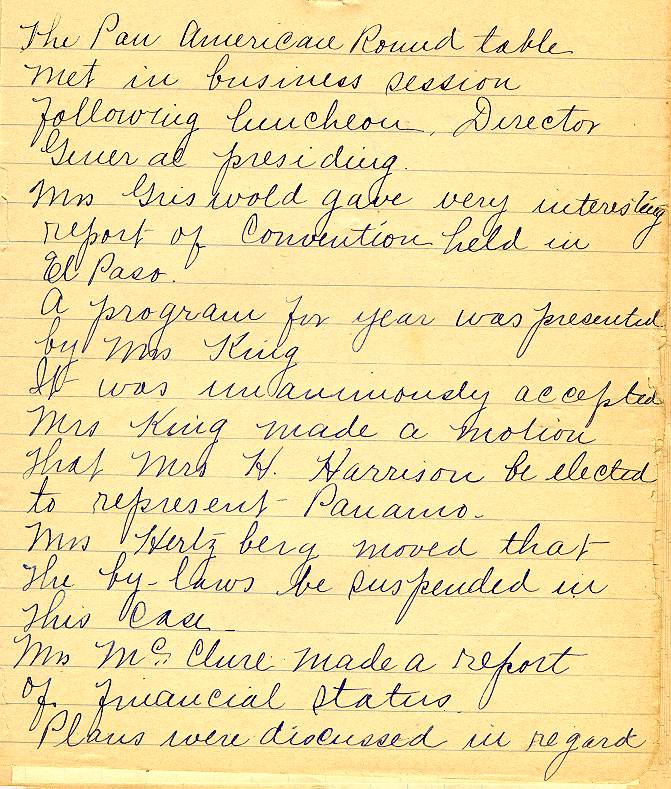 The Pan American Round table
met in business session
following luncheon, Director
General presiding.
Mrs Griswold gave very interesting
report of Convention held in
El Paso.
A program for year was presented
by Mrs King
It was unanimously accepted
Mrs King made a motion
that Mrs H. Harrison be elected
to represent Panamo.
Mrs Hertzberg moved that
the by-laws be suspended in
this case
Mrs McClure made a report
of financial status.
Plans were discussed in regard